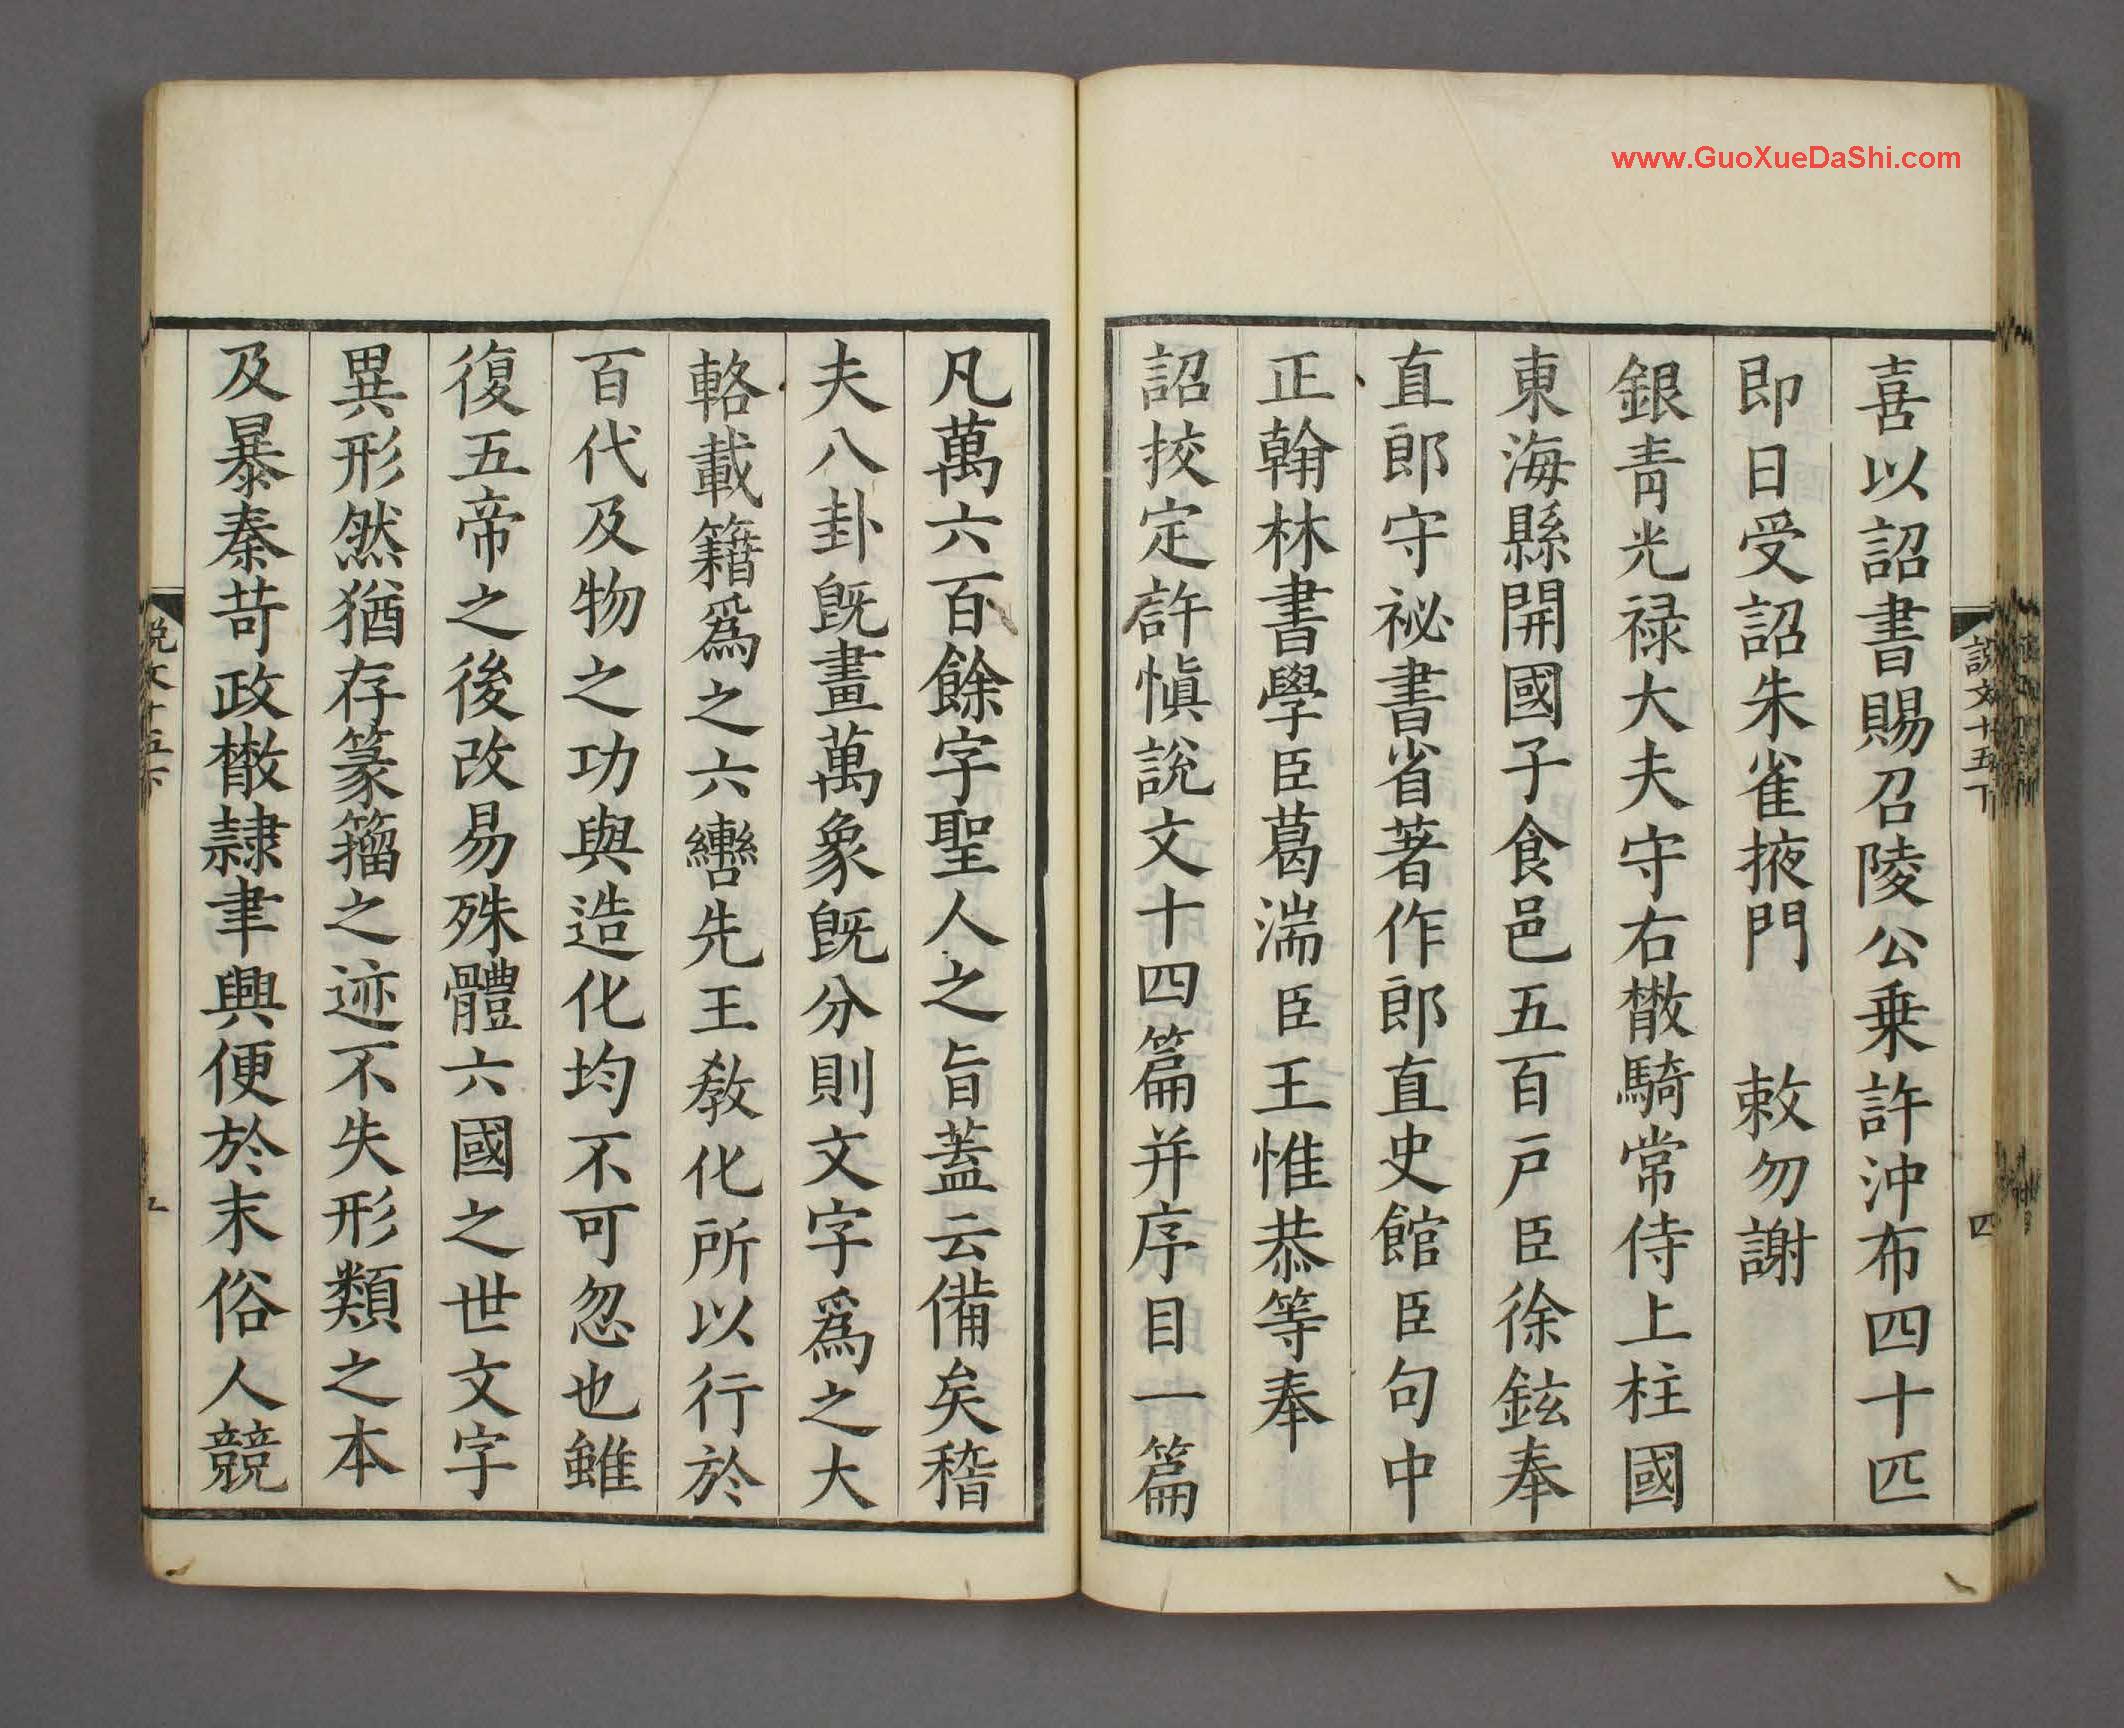 www.GuoXueDaShi.com
說文十五下
四
喜以詔書賜召陵公乗許沖布四十匹
即日受詔朱雀掖門　敕勿謝
銀青光禄大夫守右散騎常侍上柱國
東海縣開國子食邑五百戶臣徐鉉奉
直郎守祕書省著作郎直史館臣句中
正翰林書學臣葛湍臣王惟恭等奉
詔挍定許慎說文十四篇并序目一篇
凡萬六百餘字聖人之旨蓋云備矣稽
夫八卦既畫萬象既分則文字爲之大
輅載籍爲之六轡先王敎化所以行於
百代及物之功與造化均不可忽也雖
復五帝之後改易殊體六國之世文字
異形然猶存篆籀之迹不失形類之本
及暴秦苛政散隷聿興便於末俗人競
說文十五下
五